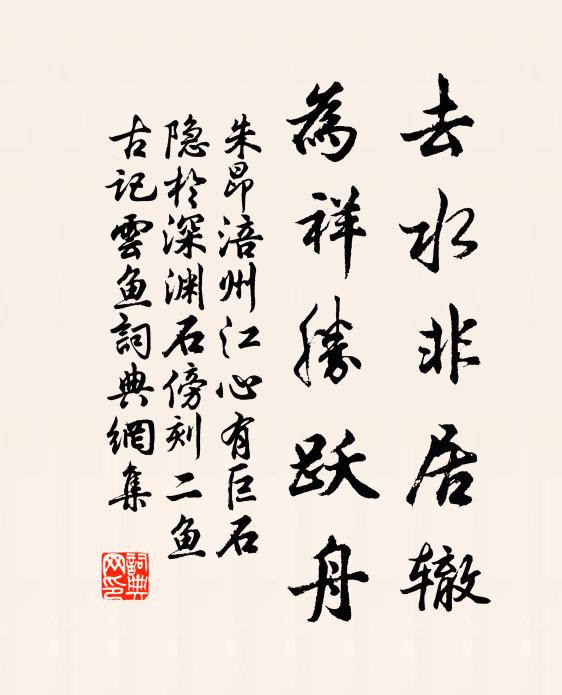 去水非居辙
為祥勝跃舟
朱昂涪州江心有巨石
隐於深渊石傍刻二鱼
古记雲鱼詞典網集
詞典网印